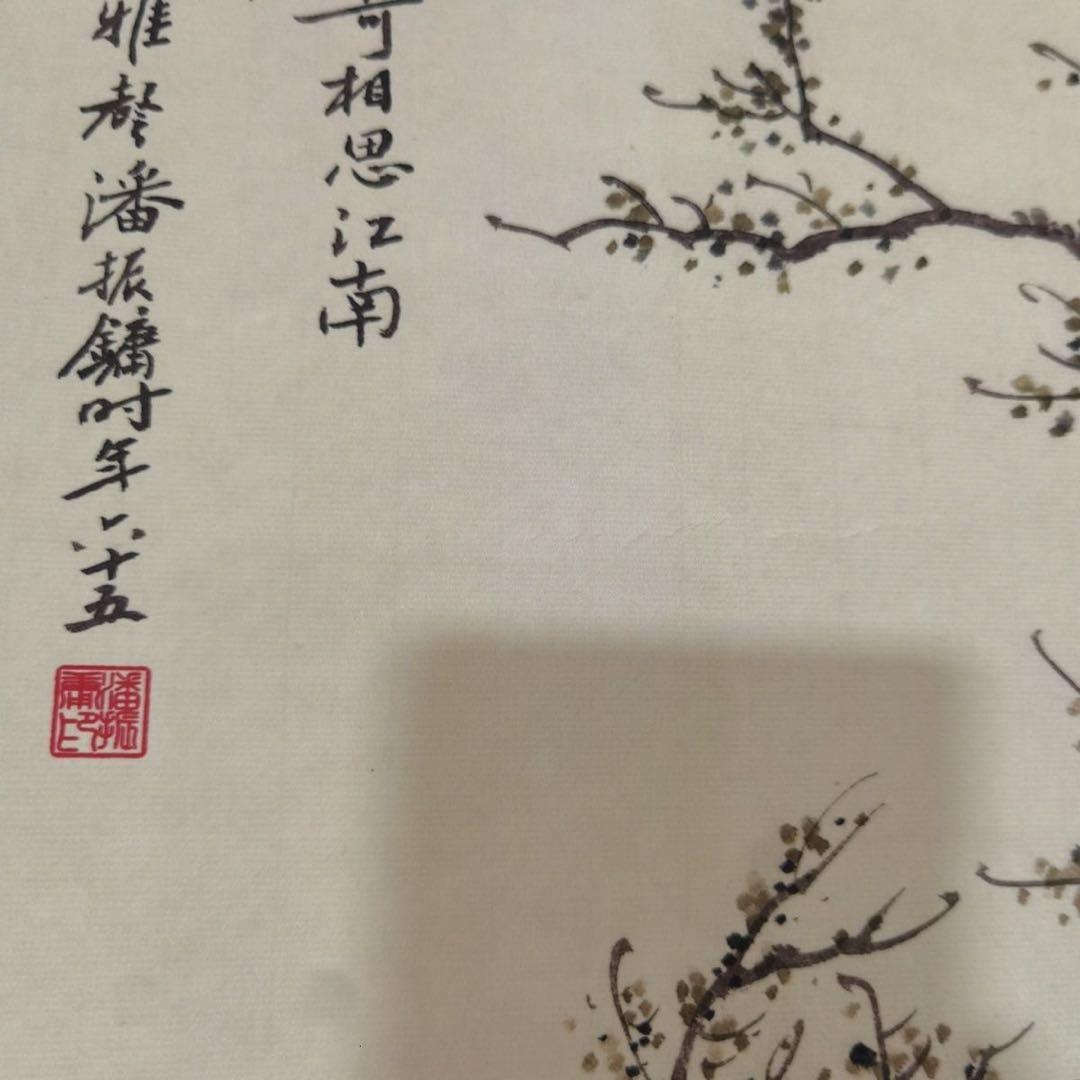 相思江南
雅潘振鏞时年六十五
潘振
庸印